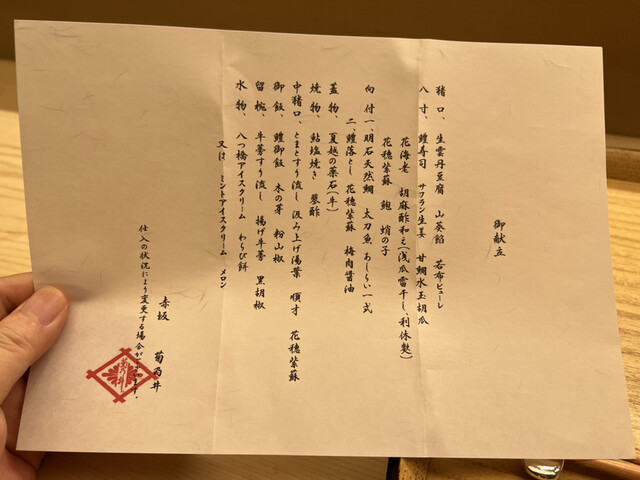 御献立
猪口、生雲丹豆腐 山葵餡 若布ピューレ
八寸、鱧寿司 サフラン生姜 甘鯛水玉胡瓜
花海老 胡麻酢和え(浅瓜雷干し、利休麩)
花穂紫蘇 鮑 蛸の子
向付一、明石天然鯛 太刀魚 あしらい一式
二、鱧落とし 花穂紫蘇 梅肉醤油
蓋物、夏越の薬石(牛)
焼物、鮎塩焼き 蓼酢
中猪口、とまとすり流し 汲み上げ湯葉 順才 花穂紫蘇
御飯、鱧御飯 木の芽 粉山椒
留椀、牛蒡すり流し 揚げ牛蒡 黒胡椒
水物、八つ橋アイスクリーム わらび餅
又は ミントアイスクリーム メロン
仕入の状況により変更する場合がございます。
赤坂 菊乃井